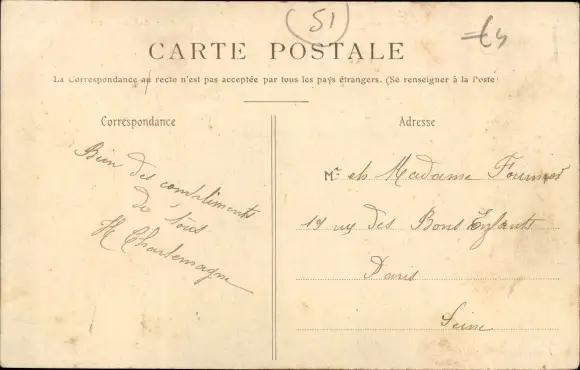 51
CARTE POSTALE
La Correspondance au recto n'est pas acceptée par tous les pays étrangers. (Se renseigner à la Poste
Correspondance
Bien des compliments
de tous
H Charlemagne
Adresse
Mr et Madame Fournier
19 rue des Bons Enfants
Paris
Seine